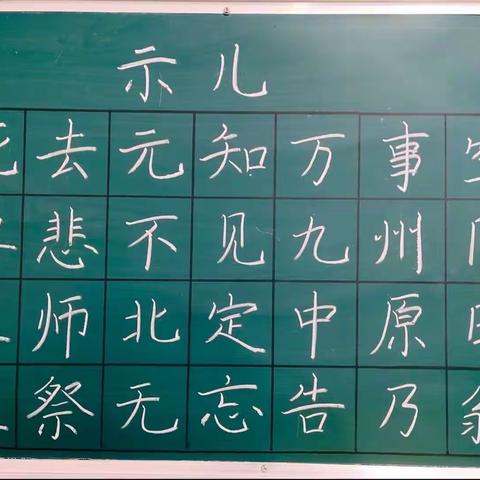 示儿
去元知万事
悲不见九州
师北定中原
祭无忘告乃